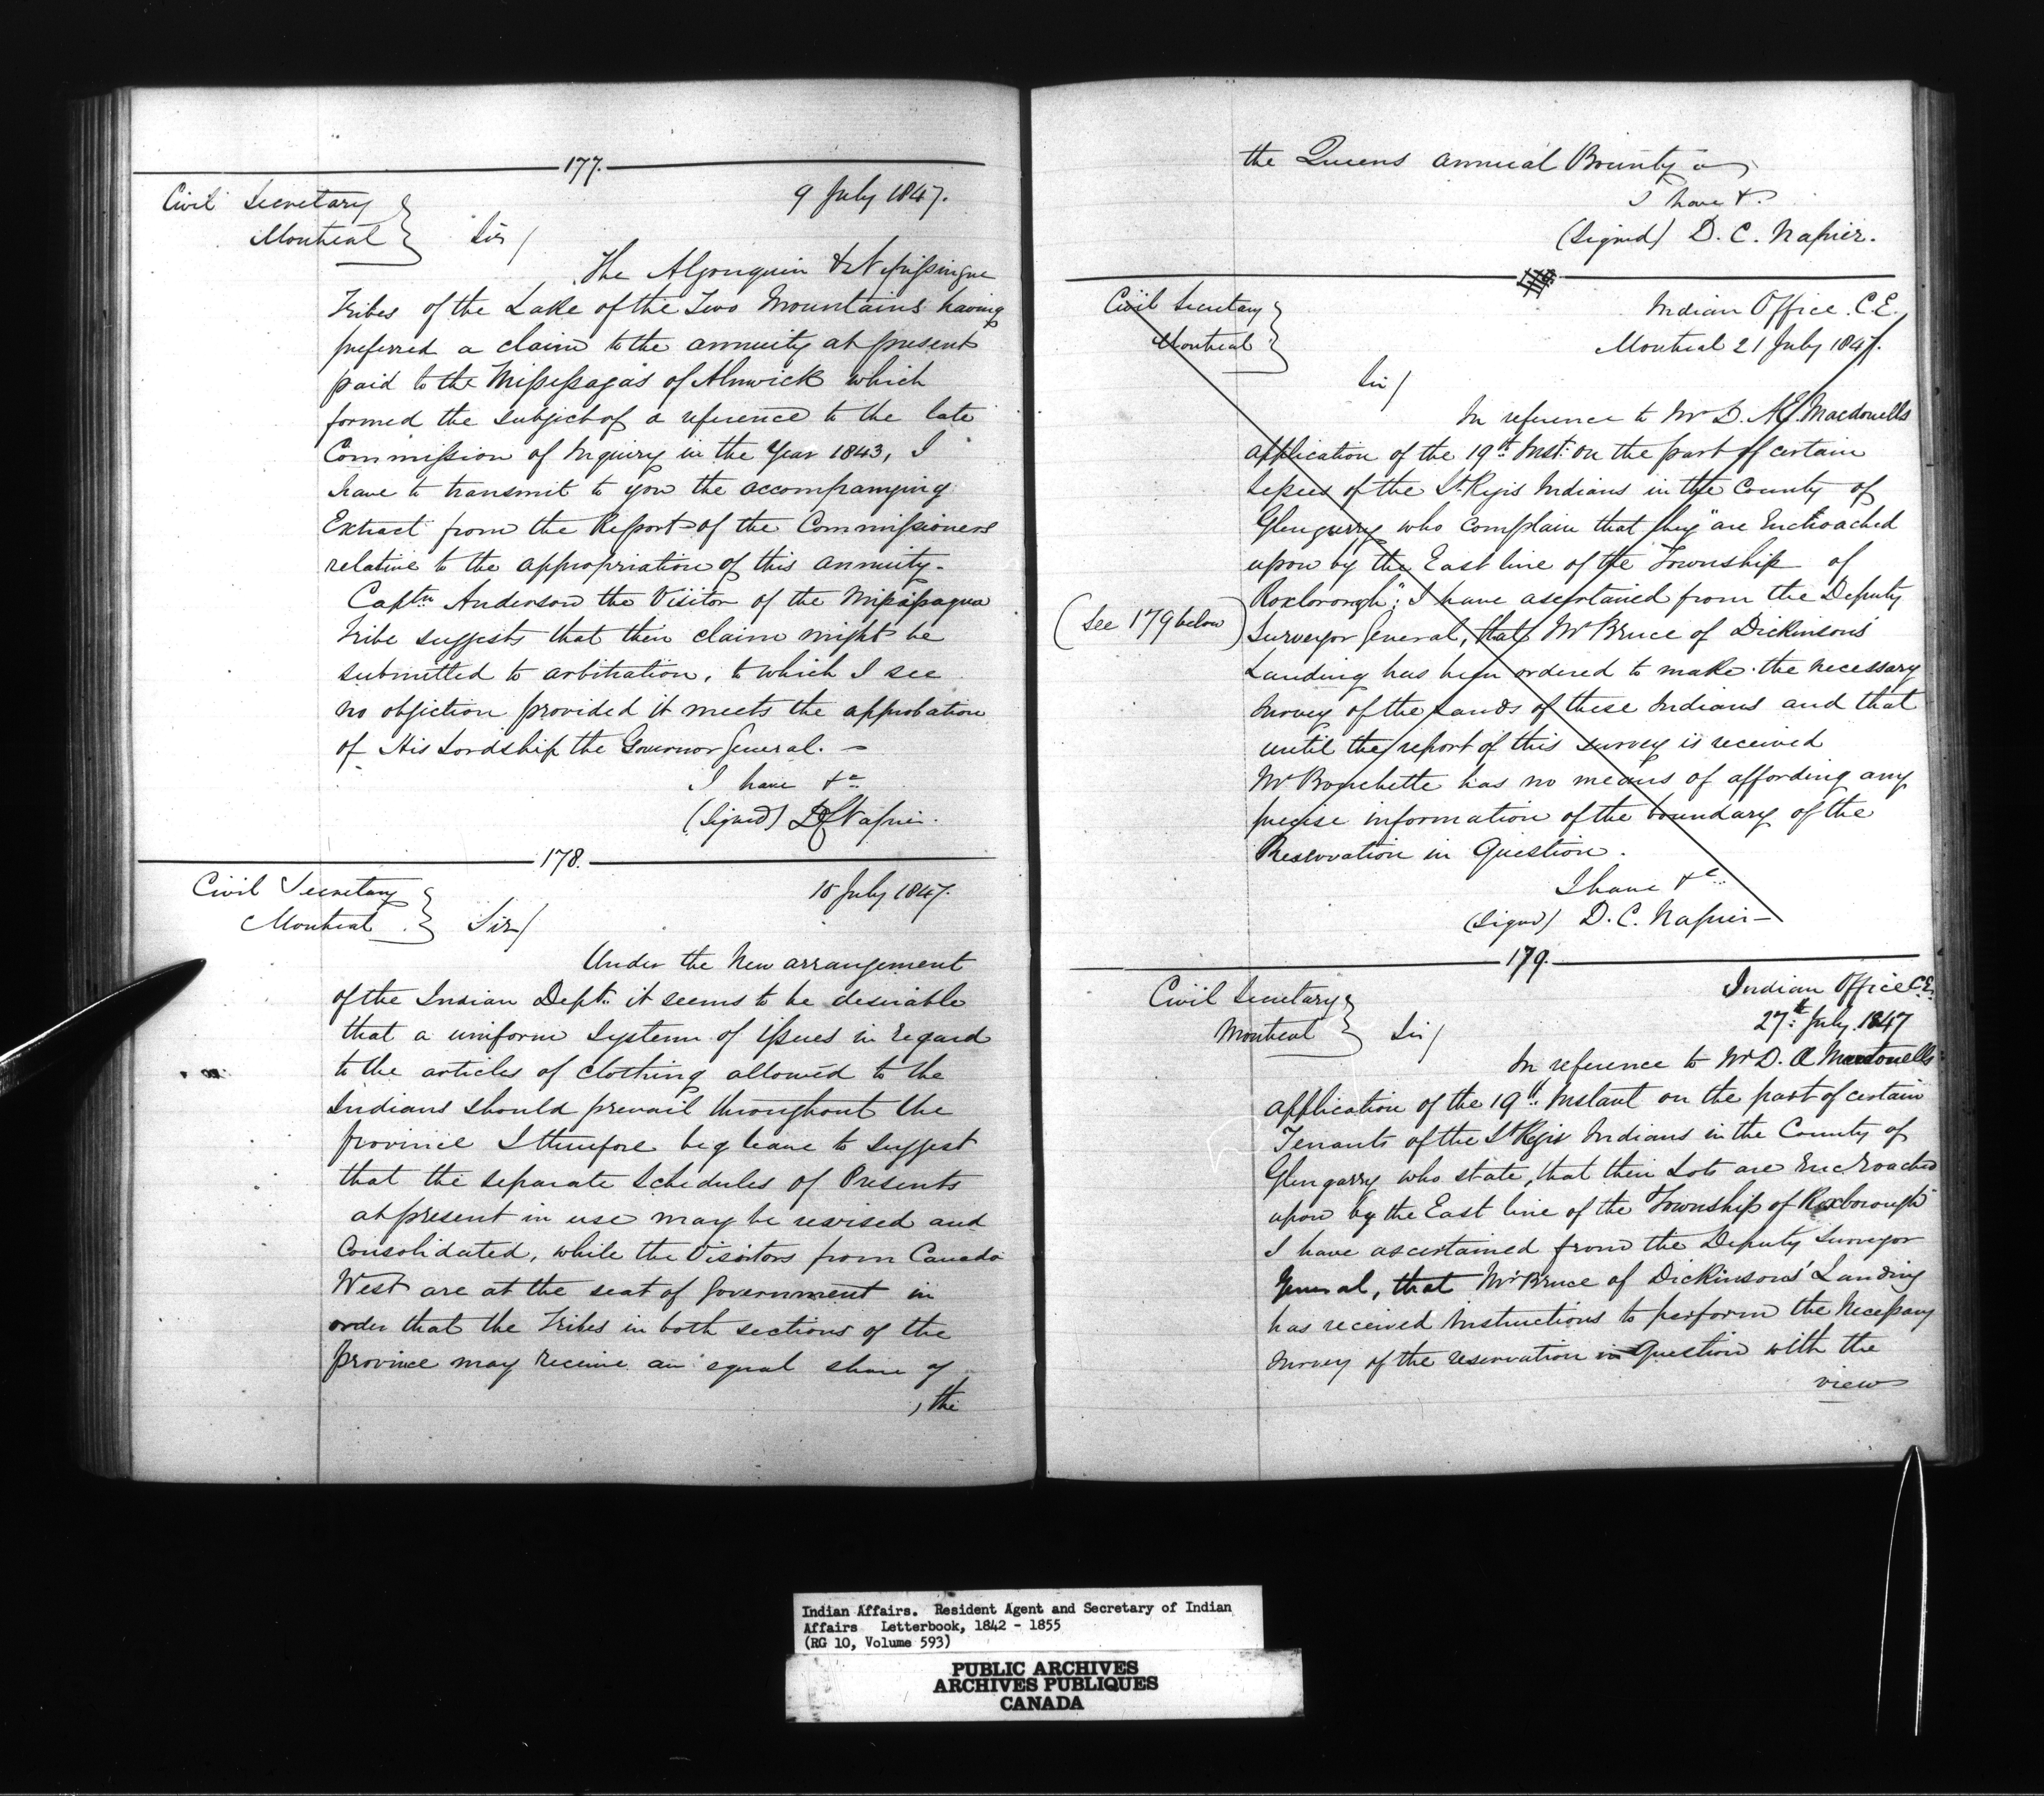 177.
Civil Secretary
Montreal
9 July 1847.
Sir/
The Algonquin & Nipissingue
Tribes of the Lake of the Two Mountains having
preferred a claim to the annuity at present
paid to the Missessagas of Alnwick which
formed the subject of a reference to the late
Commission of Inquiry in the Year 1843, I
have to transmit to you the accompanying
Extract from the Report of the Commissioners
relative to the appropriation of this annuity.
Captn Anderson the Visitor of the Missisagua
Tribe suggests that their claim might be
submitted to arbitration, to which I see
no objection provided it meets the approbation
of His Lordship the Governor General. –
I have &c
(Signed) D C Napier.
178.
Civil Secretary
Montreal
10 July 1847.
Sir/
Under the New arrangement
of the Indian Dept. it seems to be desirable
that a uniform System of issues in regard
to the articles of clothing allowed to the
Indians should prevail throughout the
province I therefore beg leave to suggest
that the separate Schedules of Presents
at present in use may be revised and
Consolidated, while the Visitors from Canada
West are at the seat of Government in
order that the Tribes in both sections of the
province may receive an equal share of
, the
the Queens annual Bounty
I have &.
(Signed) D. C. Napier.
Civil Secretary
Montreal
Indian Office C.E.
Montreal 21 July 1847.
Sir/
In reference to Mr D. Æ. Macdonells
application of the 19th Inst: on the part of certain
Lessees of the St Regis Indians in the County of
Glengarry who complain that they "are Encroached
upon by the East line of the Township of
Roxborough": I have ascertained from the Deputy
(See 179 below)
Surveyor General, that Mr Bruce of Dickinsons'
Landing has been ordered to make the necessary
Survey of the Lands of these Indians and that
until the report of this survey is received
Mr Bouchette has no means of affording any
precise information of the boundary of the
Reservation in Question.
I have &c
(Signed) D. C. Napier –
179.
Civil Secretary
Montreal
Indian Office C.E.
27th July 1847
Sir/
In reference to Mr D. Æ Macdonells
application of the 19th Instant on the part of certain
Tenants of the St Regis Indians in the County of
Glengarry who state, that their Lots are Encroached
upon by the East line of the Township of Roxborough
I have ascertained from the Deputy Surveyor
General, that Mr Bruce of Dickinsons' Landing
has received Instructions to perform the Necessary
survey of the reservation in Question with the
view
Indian Affairs. Resident Agent and Secretary of Indian
Affairs Letterbook, 1842 - 1855
(RG 10, Volume 593)
PUBLIC ARCHIVES
ARCHIVES PUBLIQUES
CANADA